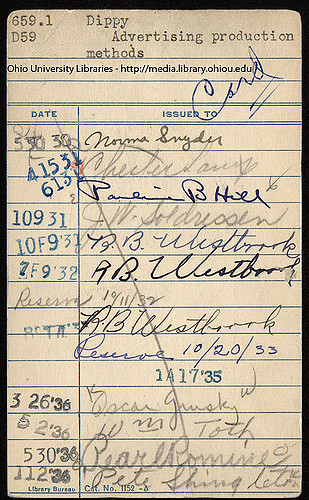 659.1 Dippy
D59 Advertising production
methods
Ohio University Libraries - http://media.library.ohiou.edu
Card
DATE ISSUED TO
5 30 Norma Snyder
4 15 31 Chester
6 15 Pauline B Hill
10 9 31 J. W.
10F9'31 R. B. Westbrook
7F9'32 R B Westbrook
Reserve 10/11/32
R B Westbrook
Reserve 10/20/33
1A17'35
3 26'36 Oscar
5 2'36 W M Toth
5 30'36 Pearl Romine
11 2'36 Pete Shingleton
Library Bureau Cat. No. 1152